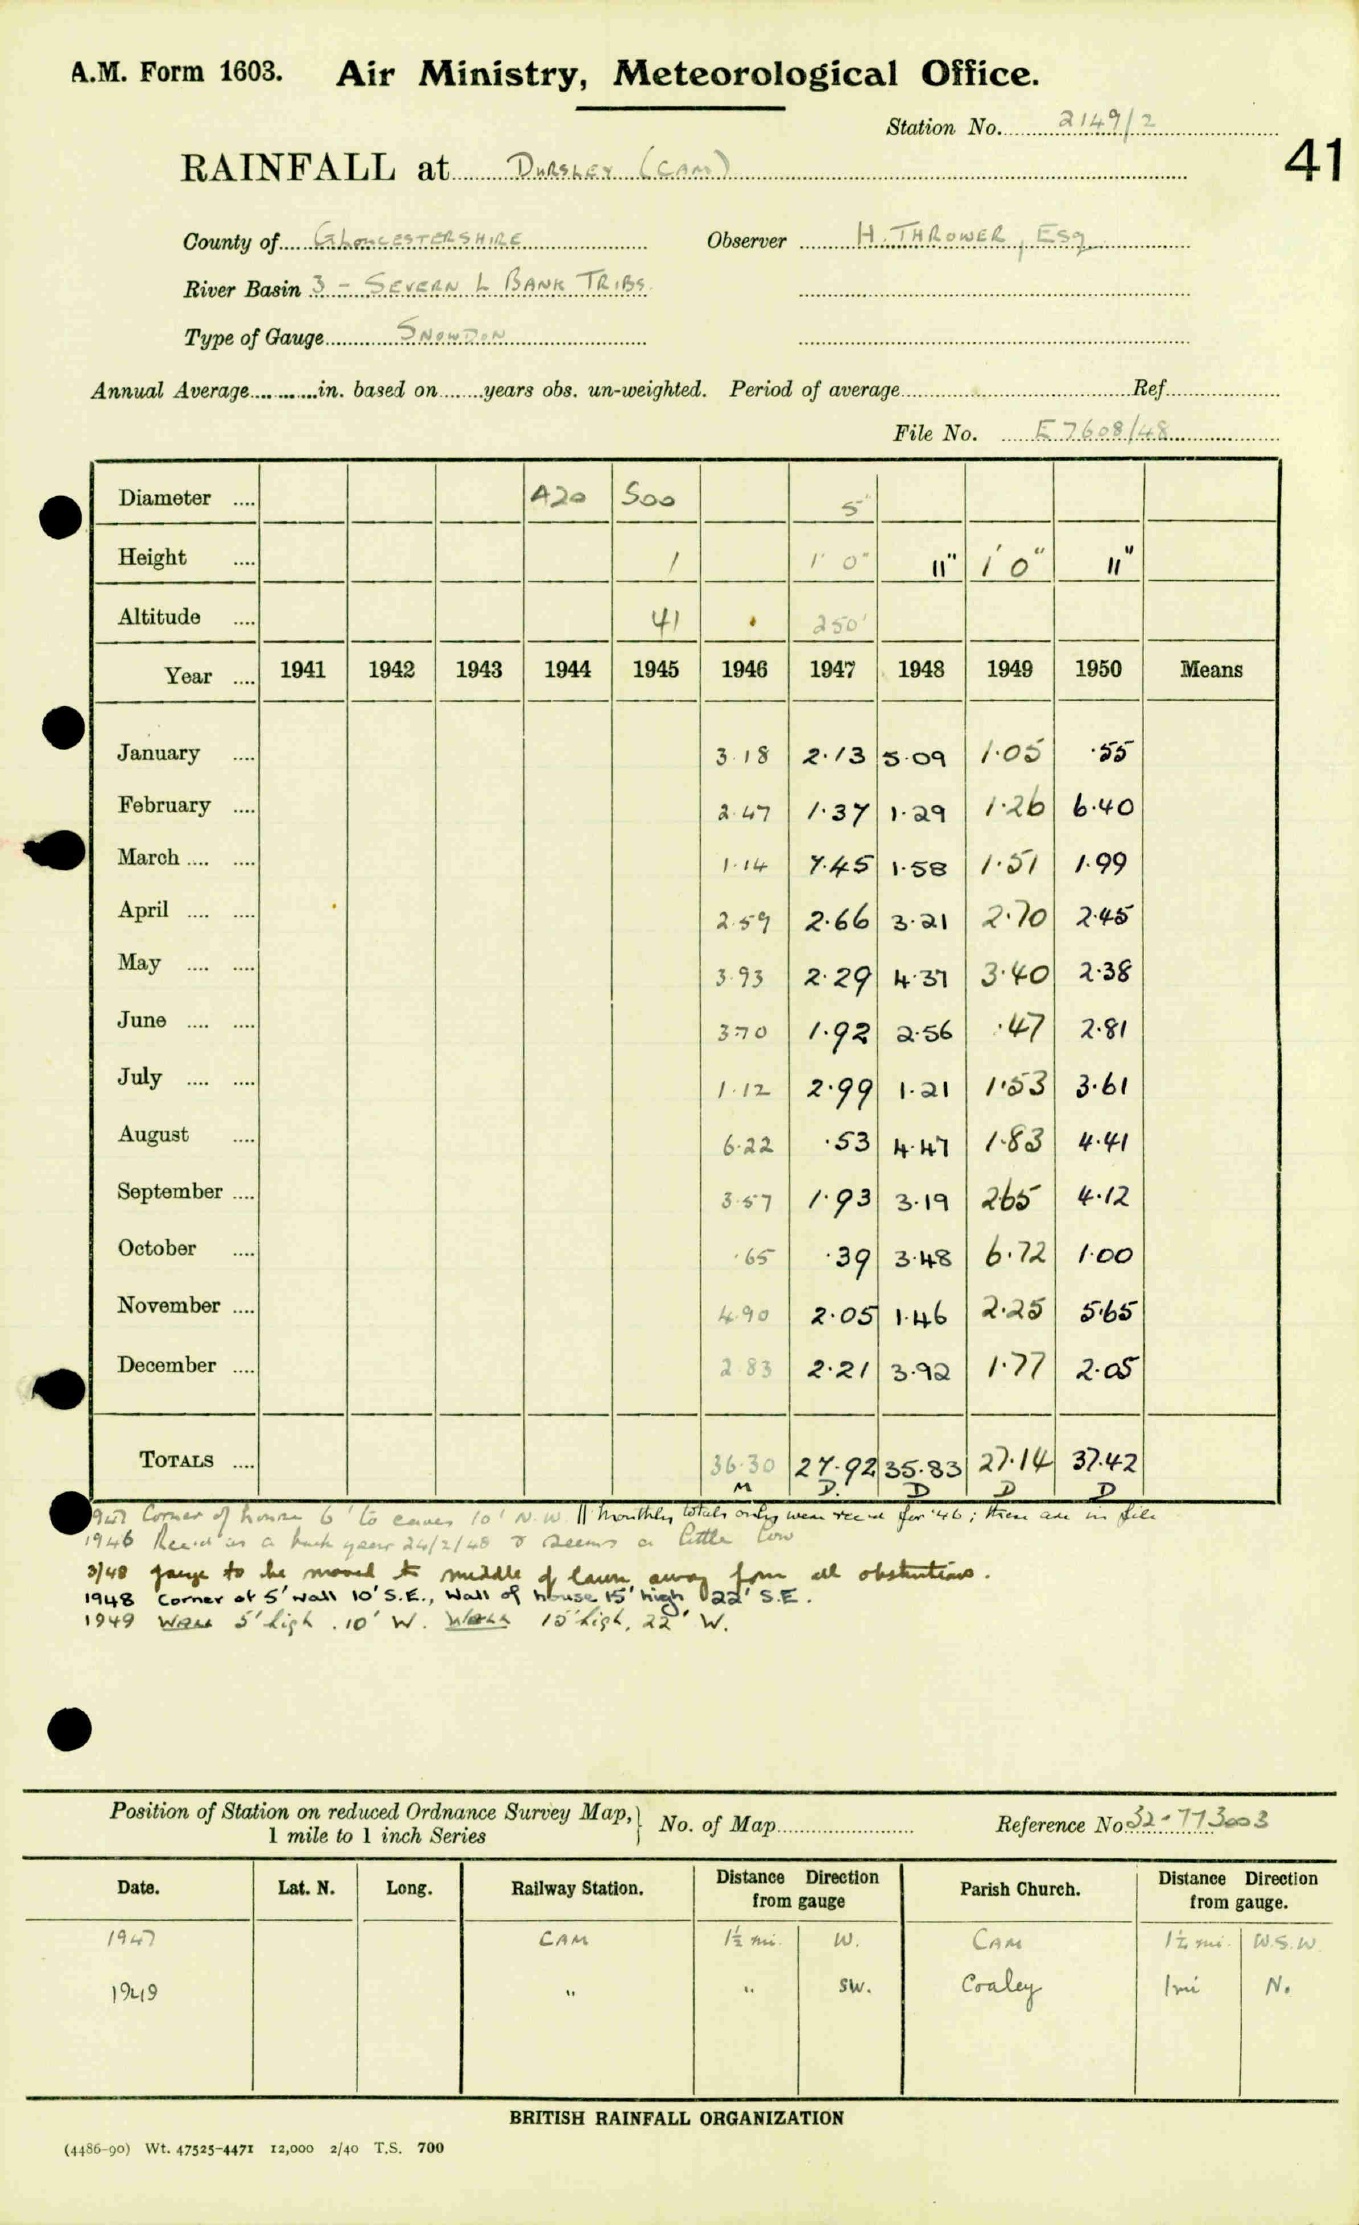 A.M. Form 1603. Air Ministry, Meteorological Office.
Station No. 2149/2
41
RAINFALL at DURSLEY (CAM)
County of GLOUCESTERSHIRE Observer H. THROWER, ESQ
River Basin 3 - SEVERN L BANK TRIBS.
Type of Gauge SNOWDON
Annual Average in. based on years obs. un-weighted. Period of average Ref
File No. E 7608/48
Diameter A20 500 5"
Height 1 1' 0" 11" 1' 0" 11"
Altitude 41 250'
Year 1941 1942 1943 1944 1945 1946 1947 1948 1949 1950 Means
January 3.18 2.13 5.09 1.05 .55
February 2.47 1.37 1.29 1.26 6.40
March 1.14 7.45 1.58 1.51 1.99
April 2.59 2.66 3.21 2.70 2.45
May 3.93 2.29 4.37 3.40 2.38
June 3.70 1.92 2.56 .47 2.81
July 1.12 2.99 1.21 1.53 3.61
August 6.22 .53 4.47 1.83 4.41
September 3.57 1.93 3.19 2.65 4.12
October .65 .39 3.48 6.72 1.00
November 4.90 2.05 1.46 2.25 5.65
December 2.83 2.21 3.92 1.77 2.05
TOTALS 36.30 27.92 35.83 27.14 37.42
M D. D D D
1947 Corner of house 6' to eaves 10' N.W. || monthly totals only were rec'd for '46; these are in file
1946 Rec'd as a back year 24/2/48 & seems a little low
3/48 gauge to be moved to middle of lawn away from all obstructions.
1948 Corner of 5' wall 10' S.E., Wall of house 15' high 22' S.E.
1949 Wall 5' high . 10' W. Wall 15' high, 22' W.
Position of Station on reduced Ordnance Survey Map, 1 mile to 1 inch Series } No. of Map Reference No 32-773003
Date. Lat. N. Long. Railway Station. Distance Direction from gauge Parish Church. Distance Direction from gauge.
1947 CAM 1½ mi. W. CAM 1¼ mi. W.S.W.
1949 " " SW. Coaley 1 mi N.
BRITISH RAINFALL ORGANIZATION
(4486-90) Wt. 47525-4471 12,000 2/40 T.S. 700